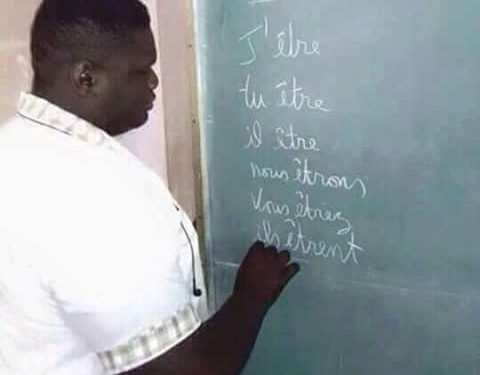 J'être
tu être
il être
nous êtrons
vous êtrez
ils êtrent